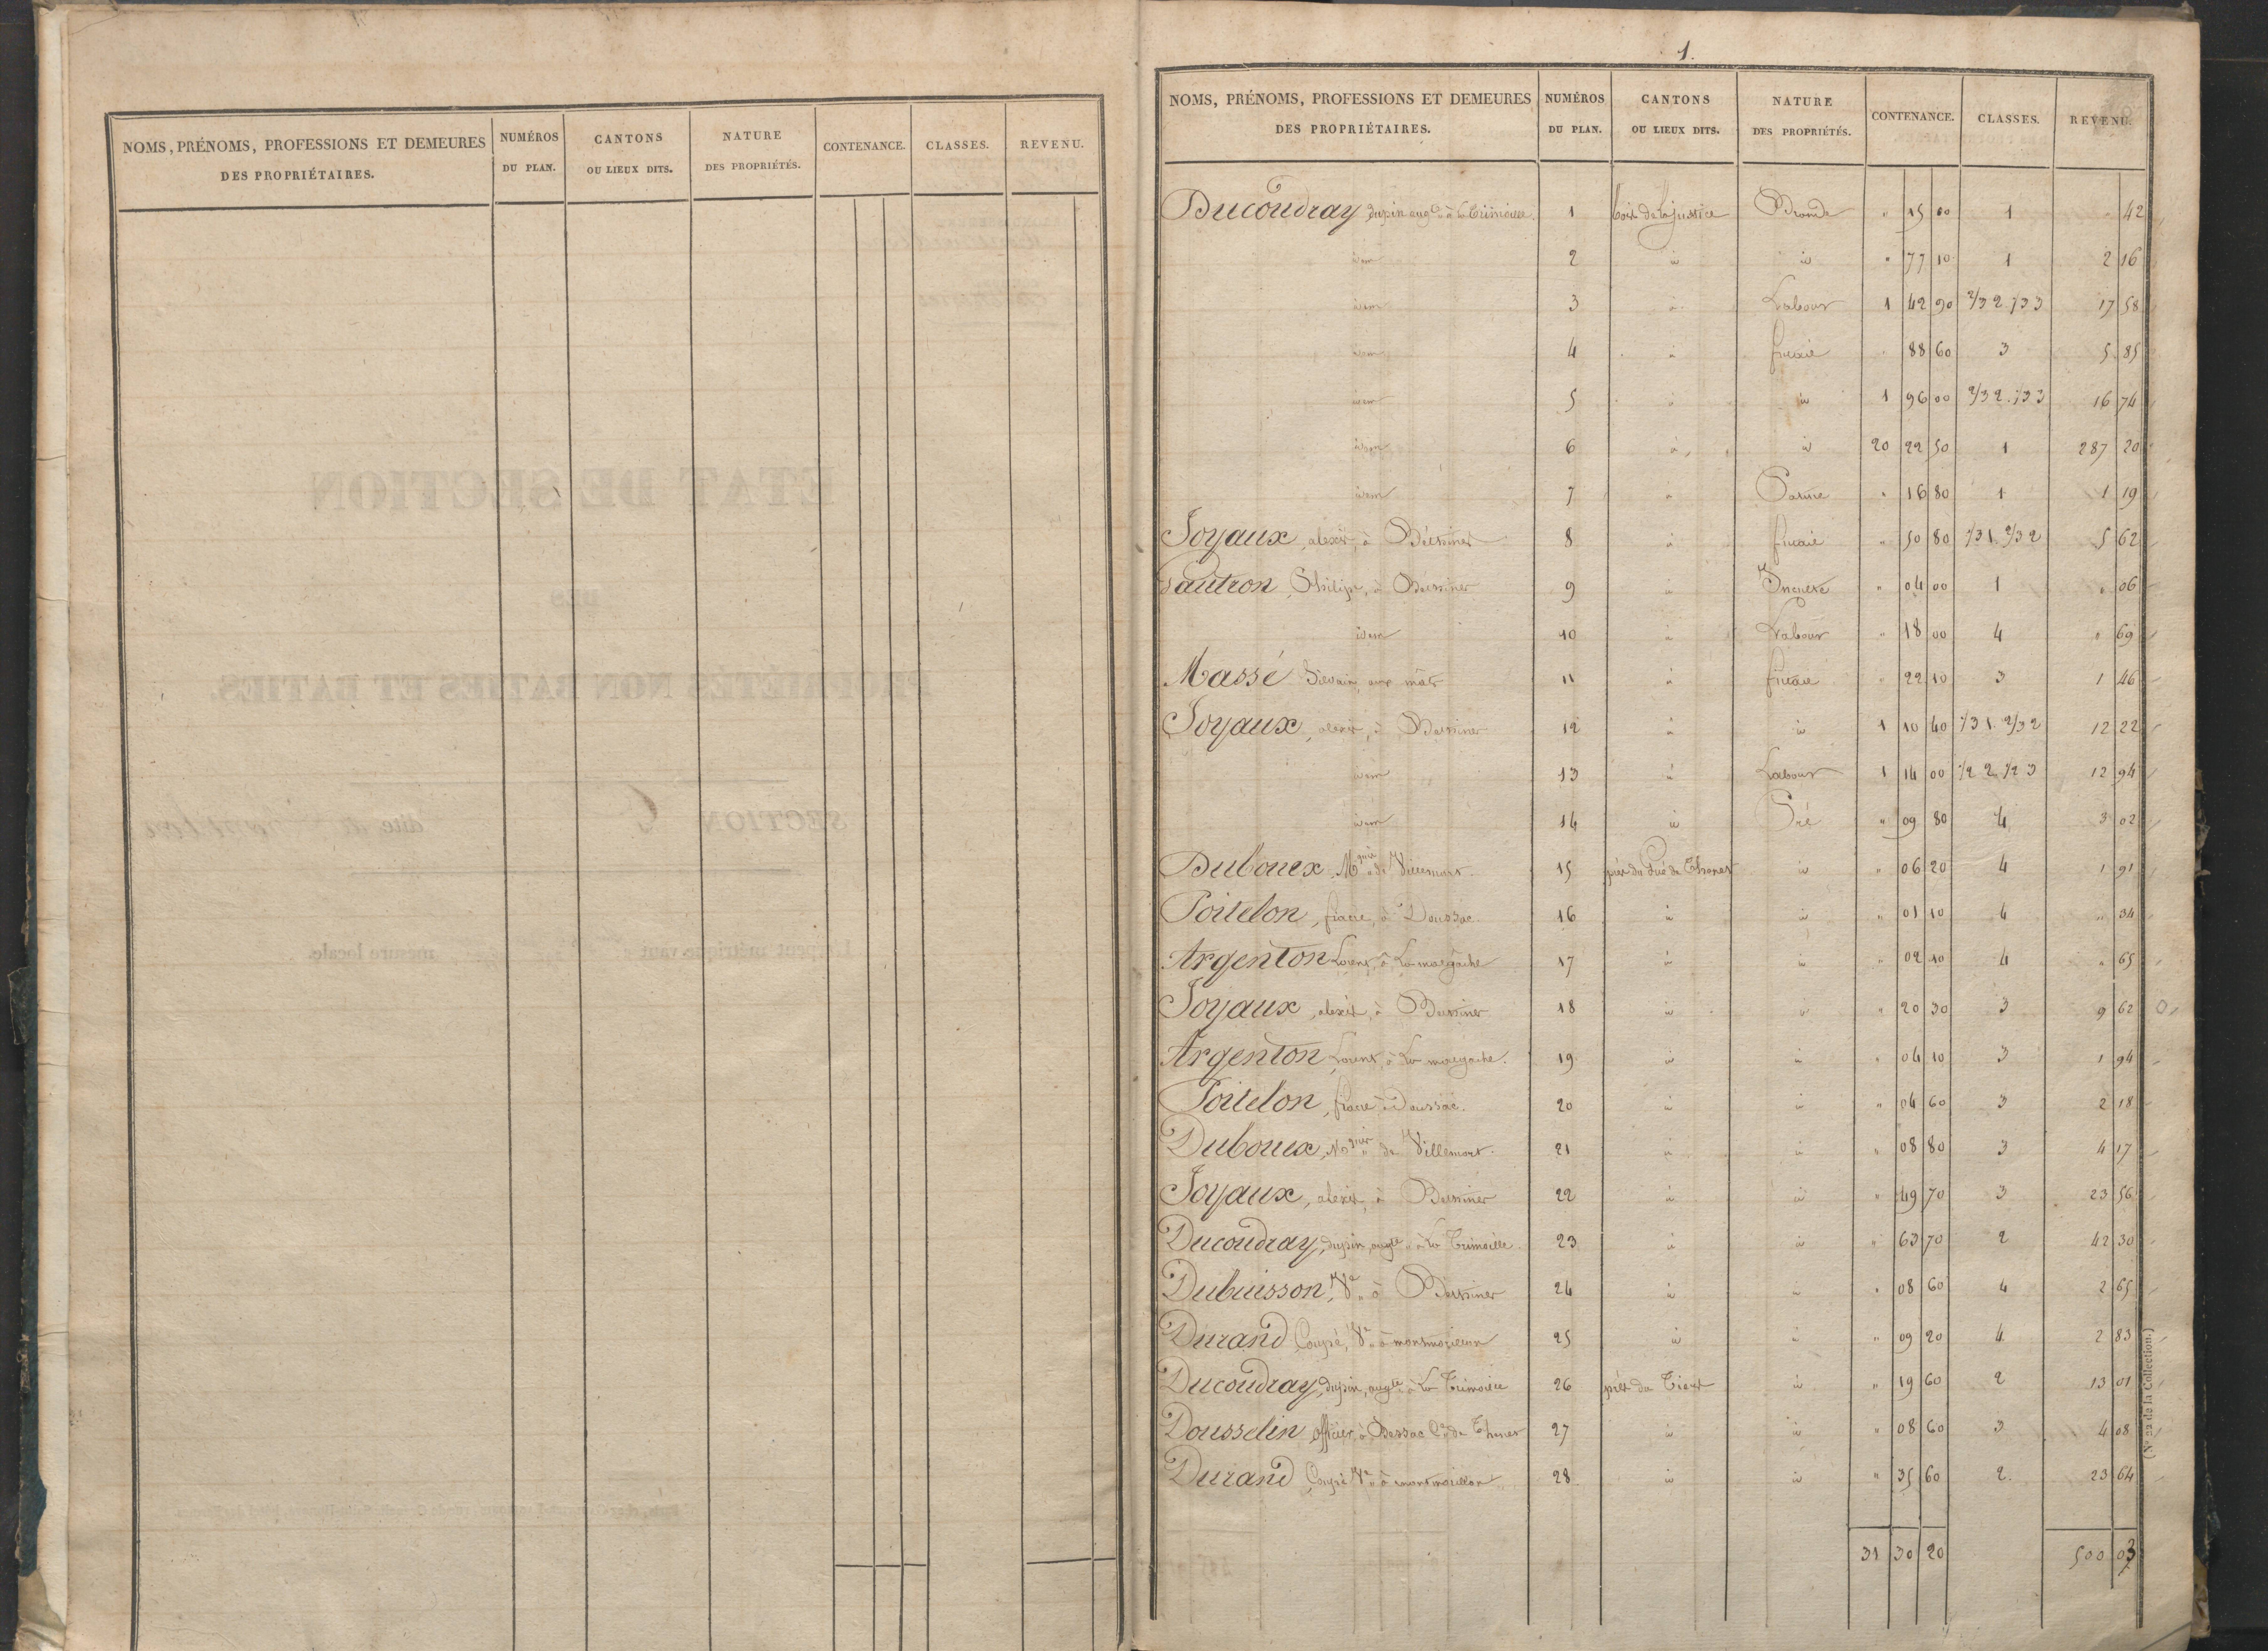 NOMS, PRÉNOMS, PROFESSIONS ET DEMEURES DES PROPRIÉTAIRES. NUMÉROS DU PLAN. CANTONS OU LIEUX DITS. NATURE DES PROPRIÉTÉS. CONTENANCE. CLASSES. REVENU.
1.
NOMS, PRÉNOMS, PROFESSIONS ET DEMEURES DES PROPRIÉTAIRES. NUMÉROS DU PLAN. CANTONS OU LIEUX DITS. NATURE DES PROPRIÉTÉS. CONTENANCE. CLASSES. REVENU.
Ducoudray dupin à la Trimoille 1 bois de la justice " 15 00 1 " 42
idem 2 id id " 77 10 1 2 16
idem 3 id Labour 1 42 90 2/3 2. 1/3 3 17 58
idem 4 id 88 60 3 5 85
idem 5 id id 1 96 00 2/3 2. 1/3 3 16 74
idem 6 id id 20 22 50 1 287 20
idem 7 id " 16 80 1 1 19
Joyaux, alexis, à 8 id " 50 80 1/3 1. 2/3 2 5 62
Philipe, à 9 id " 04 00 1 " 06
idem 10 id Labour " 18 00 4 " 69
Massé Silvain, aux mâts 11 id " 22 10 3 1 46
Joyaux, alexis, à 12 id id 1 10 40 1/3 1. 2/3 2 12 22
idem 13 id Labour 1 14 00 1/2 2. 1/2 3 12 94
idem 14 id Pré " 09 80 4 3 02
Dubouex, de Villemort 15 du Gué de Thenet id " 06 20 4 1 91
Poitelon, fiacre, à Doussac 16 id id " 01 10 4 " 34
Argenton Lorent, à La 17 id id " 02 10 4 " 65
Joyaux, alexis, à 18 id id " 20 30 3 9 62
Argenton Lorent, à La 19 id id " 04 10 3 1 94
Poitelon, fiacre à Doussac. 20 id id " 04 60 3 2 18
Dubouex, de Villemort. 21 id id " 08 80 3 4 17
Joyaux, alexis, à 22 id id " 49 70 3 23 56
Ducoudray, dupin, à La Trimoille 23 id id " 63 70 2 42 30
Dubuisson, Ve à 24 id id " 08 60 4 2 65
Durand Coupé, Ve à montmorillon 25 id id " 09 20 4 2 83
Ducoudray, dupin, à La Trimoille 26 id " 19 60 2 13 01
Dousselin officier, à de Thenet 27 id id " 08 60 3 4 08
Durand Coupé Ve à montmorillon 28 id id " 35 60 2. 23 64
31 30 20 500 03
(No 22 de la Collection.)